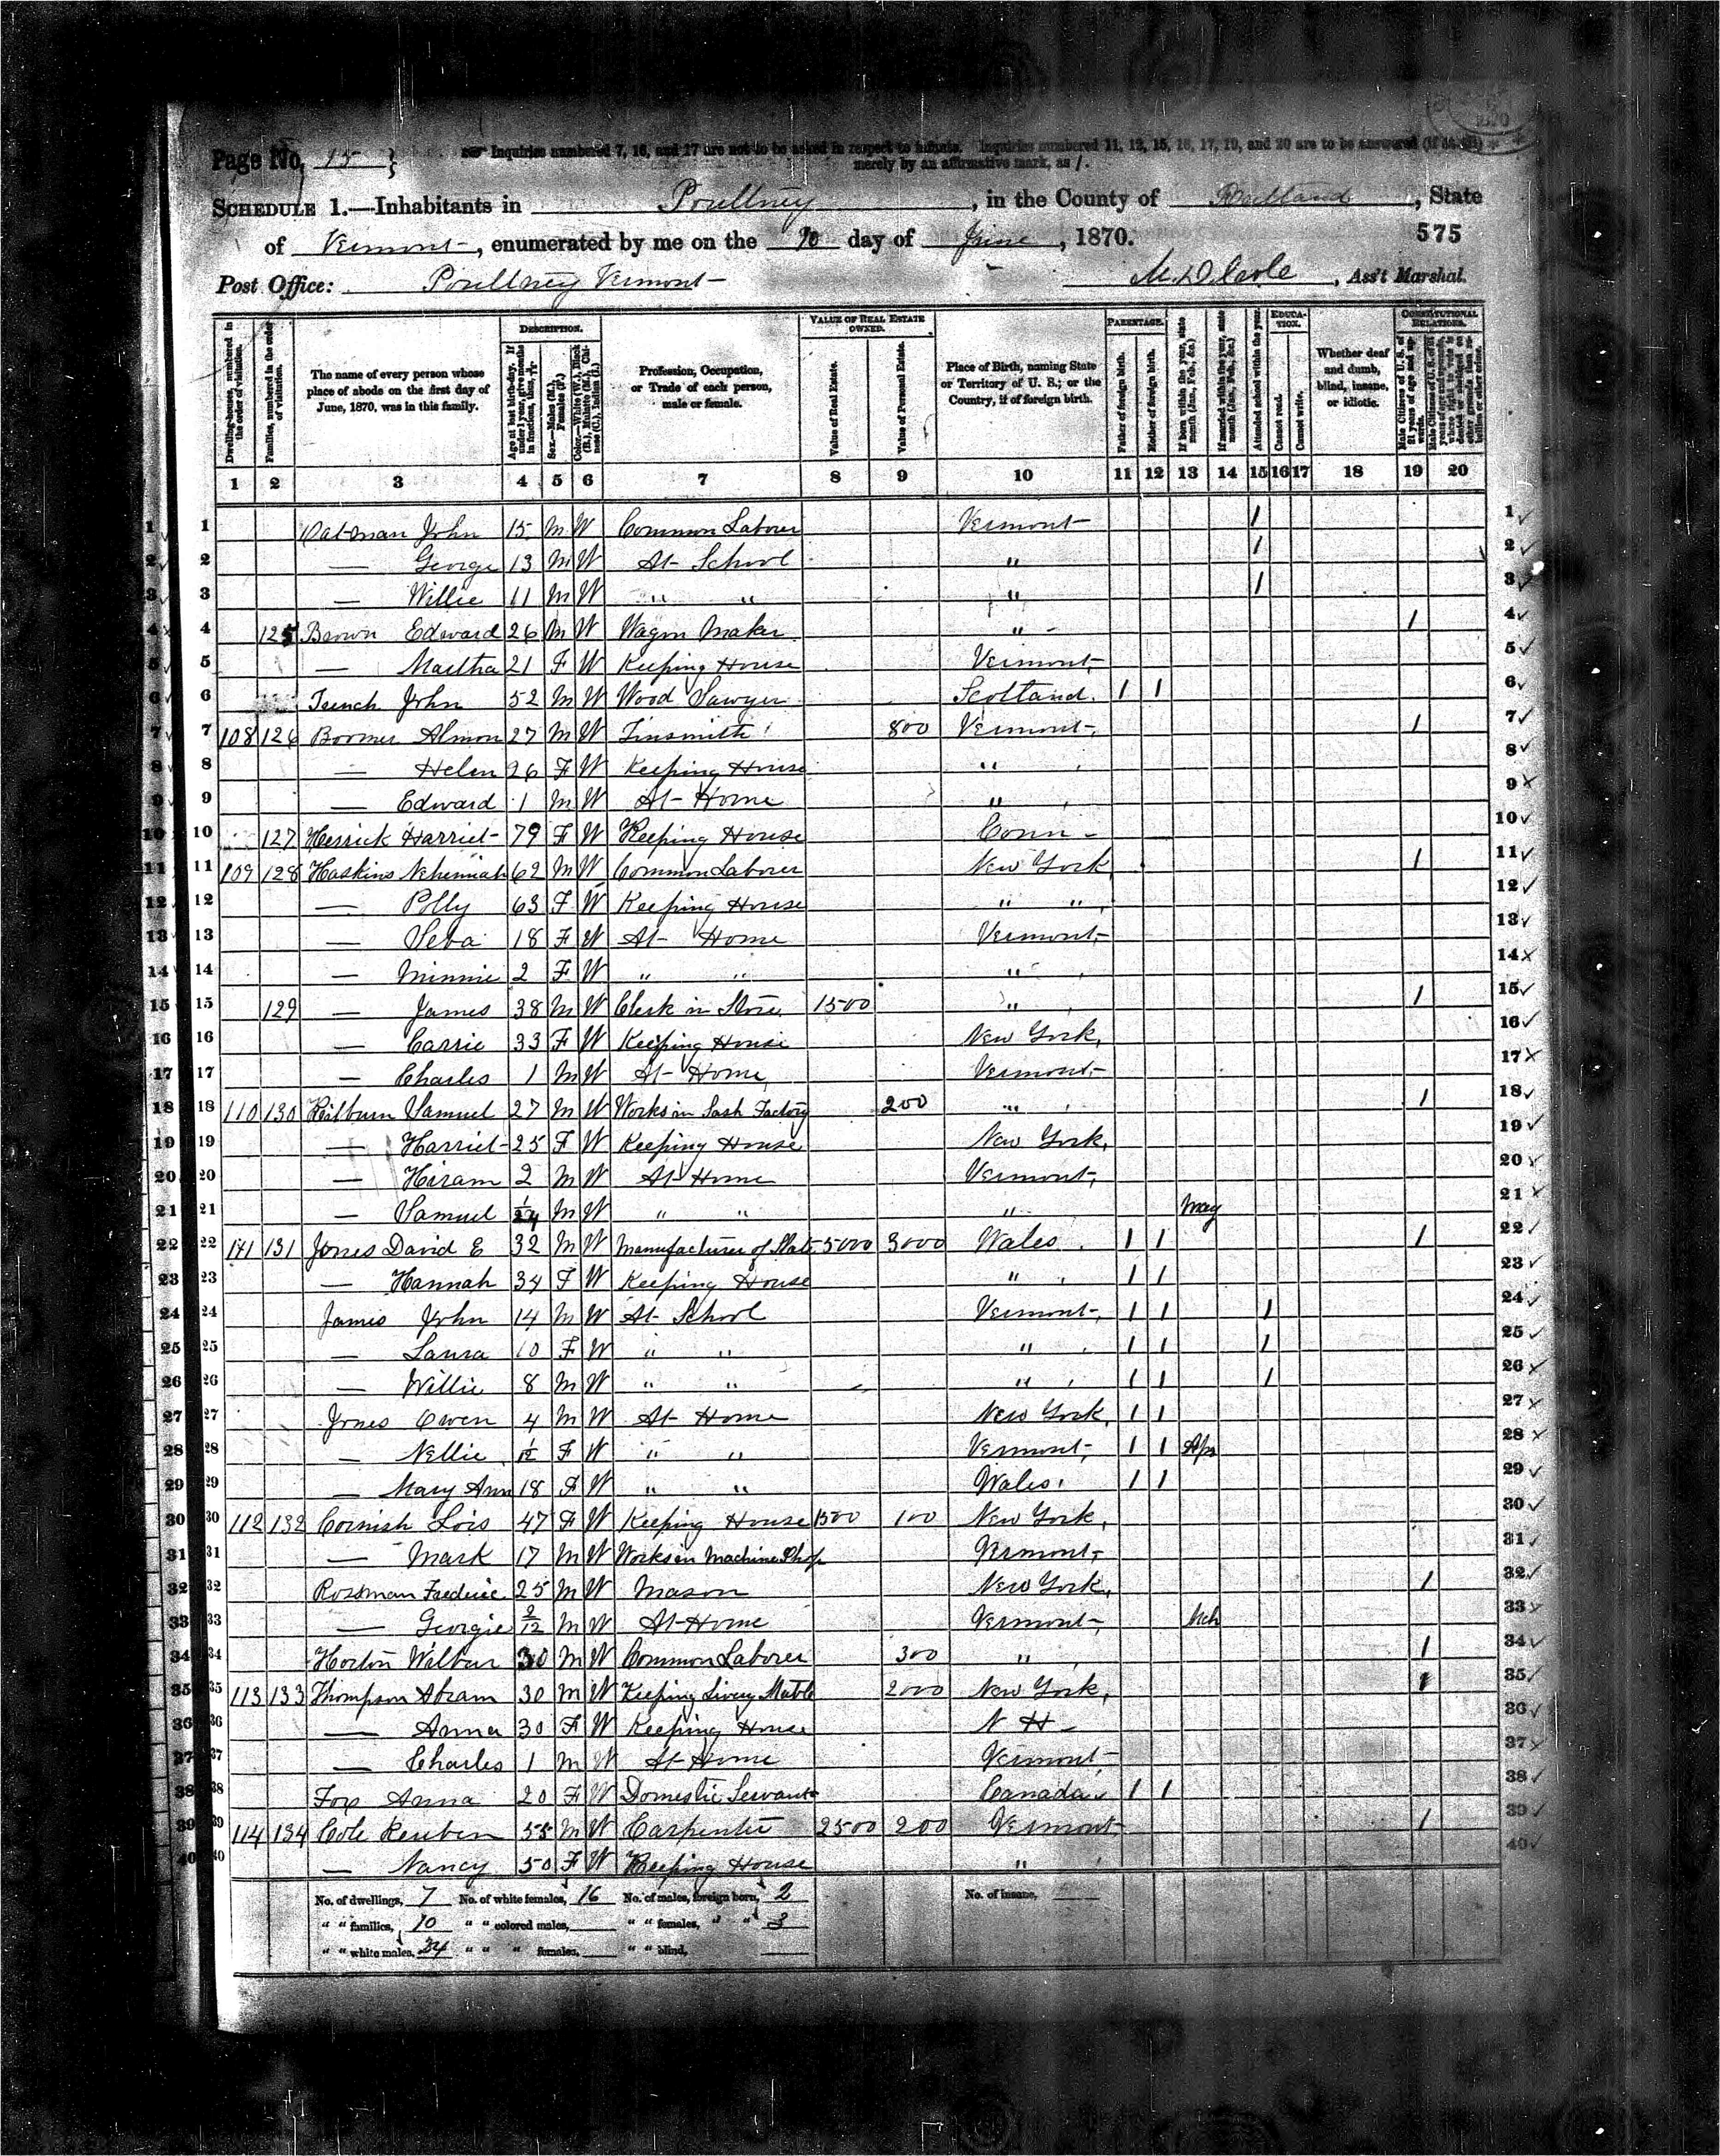 Page No. 15 }
Inquiries numbered 7, 16, and 17 are not to be asked in respect to infants. Inquiries numbered 11, 12, 15, 16, 17, 19, and 20 are to be answered (if at all)
merely by an affirmative mark, as /.
SCHEDULE 1.—Inhabitants in Poultney, in the County of Rutland, State
of Vermont, enumerated by me on the day of June, 1870. 575
Post Office: Poultney Vermont , Ass't Marshal.
Dwelling-houses, numbered in the order of visitation.
Families, numbered in the order of visitation.
The name of every person whose place of abode on the first day of June, 1870, was in this family.
DESCRIPTION.
Age at last birth-day. If under 1 year, give months in fractions, thus, 3/12
Sex.—Males (M.), Females (F.)
Color.—White (W.), Black (B.), Mulatto (M.), Chinese (C.), Indian (I.)
Profession, Occupation, or Trade of each person, male or female.
VALUE OF REAL ESTATE OWNED.
Value of Real Estate.
Value of Personal Estate.
Place of Birth, naming State or Territory of U. S.; or the Country, if of foreign birth.
PARENTAGE.
Father of foreign birth.
Mother of foreign birth.
If born within the year, state month (Jan., Feb., &c.)
If married within the year, state month (Jan., Feb., &c.)
EDUCATION.
Attended school within the year.
Cannot read.
Cannot write.
Whether deaf and dumb, blind, insane, or idiotic.
CONSTITUTIONAL RELATIONS.
Male Citizens of U. S. of 21 years of age and upwards.
1 2 3 4 5 6 7 8 9 10 11 12 13 14 15 16 17 18 19 20
1 1 Oatman John 15 M W Common Laborer Vermont 1 1
2 2 — George 13 M W At School " 1 2
3 3 — Willie 11 M W " " " 1 3
4 4 125 Brown Edward 26 M W Wagon Maker " 1 4
5 5 — Martha 21 F W Keeping House Vermont 5
6 6 John 52 M W Wood Sawyer Scotland 1 1 6
7 7 108 126 Boomer Almon 27 M W Tinsmith 800 Vermont 1 7
8 8 — Helen 26 F W Keeping House " 8
9 9 — Edward 1 M W At Home " 9
10 10 127 Herrick Harriet 79 F W Keeping House Conn 10
11 11 109 128 Haskins Nehemiah 62 M W Common Laborer New York 1 11
12 12 — Polly 63 F W Keeping House " " 12
13 13 — Seba 18 F W At Home Vermont 13
14 14 — Minnie 2 F W " " " 14
15 15 129 — James 38 M W Clerk in Store 1500 " 1 15
16 16 — Carrie 33 F W Keeping House New York 16
17 17 — Charles 1 M W At Home Vermont 17
18 18 110 130 Kilburn Samuel 27 M W Works in Sash Factory 200 " 1 18
19 19 — Harriet 25 F W Keeping House New York 19
20 20 — Hiram 2 M W At Home Vermont 20
21 21 — Samuel M W " " " May 21
22 22 111 131 Jones David E 32 M W Manufacturer of Slate 5000 3000 Wales 1 1 1 22
23 23 — Hannah 34 F W Keeping House " 1 1 23
24 24 James John 14 M W At School Vermont 1 1 1 24
25 25 — Laura 10 F W " " " 1 1 1 25
26 26 — Willie 8 M W " " " 1 1 1 26
27 27 Jones Owen 4 M W At Home New York 1 1 27
28 28 — Nellie 1/12 F W " " Vermont 1 1 Apr 28
29 29 — Mary Ann 18 F W " " Wales 1 1 29
30 30 112 132 Cornish Lois 47 F W Keeping House 1500 100 New York 30
31 31 — Mark 17 M W Works in Machine Shop Vermont 31
32 32 Rossman Frederic 25 M W Mason New York 1 32
33 33 — Georgie 2/12 M W At Home Vermont Mch 33
34 34 Horton Wilbur 30 M W Common Laborer 300 " 1 34
35 35 113 133 Thompson Abram 30 M W Keeping Livery Stable 2000 New York 1 35
36 36 — Anna 30 F W Keeping House N H 36
37 37 — Charles 1 M W At Home Vermont 37
38 38 Fox Anna 20 F W Domestic Servant Canada 1 1 38
39 39 114 134 Cole Reuben 55 M W Carpenter 2500 200 Vermont 1 39
40 40 — Nancy 50 F W Keeping House " 40
No. of dwellings, 7 No. of white females, 16 No. of males, foreign born, 2 No. of insane,
" " families, 10 " " colored males, " " females, " " 3
" " white males, 24 " " " females, " " blind,